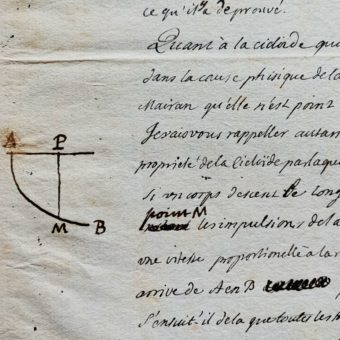 ce qu'il a deprouvé.
Quant à la cicloide que
dans la cause phisique de la
Mairan qu'elle n'est point
Jevaisvous rappeller autan
A P
proprieté de la Cicloide par laque
Si un corps descent le long
point M
M B
les impulsions de la
une vitesse proportionelle a la r
arrive de A en B
S'ensuit'il de la que toutes les